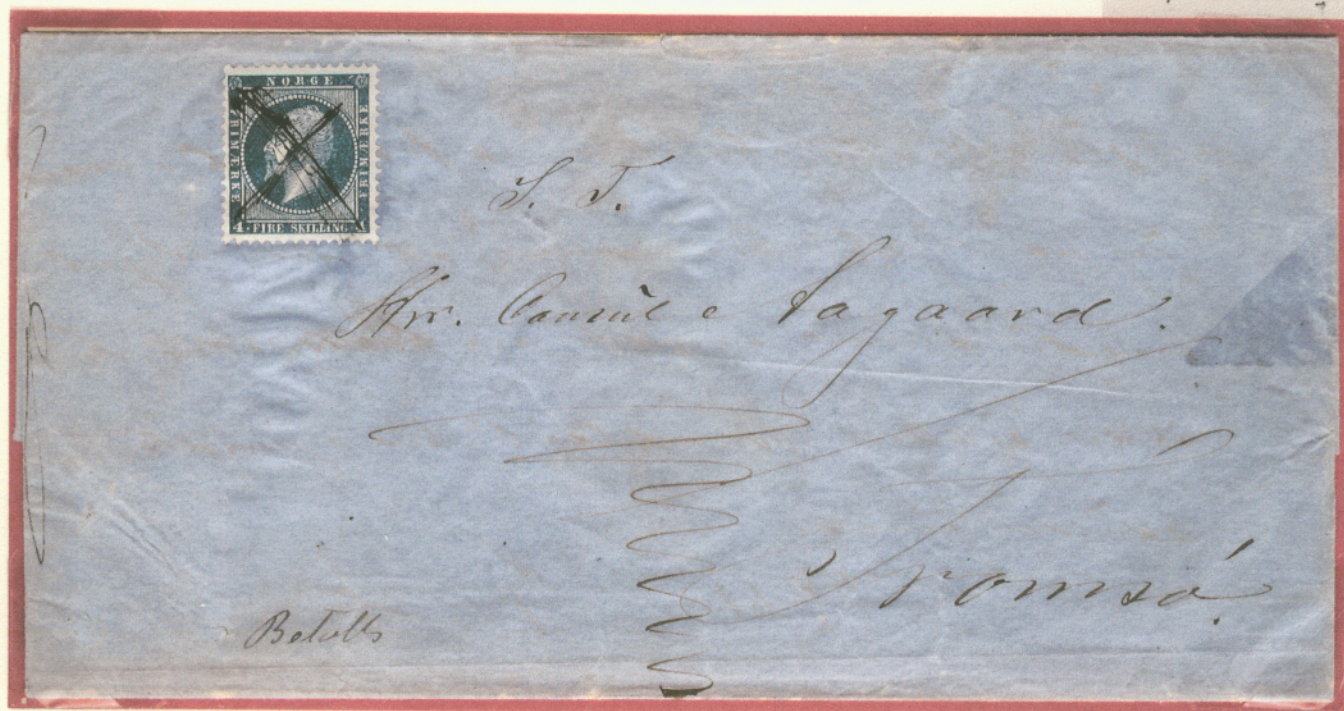 NORGE
FRIMÆRKE
FRIMÆRKE
4 FIRE SKILLING 4
S. T.
Hrr. Consul e Aagaard.
Tromsö.
Betalt